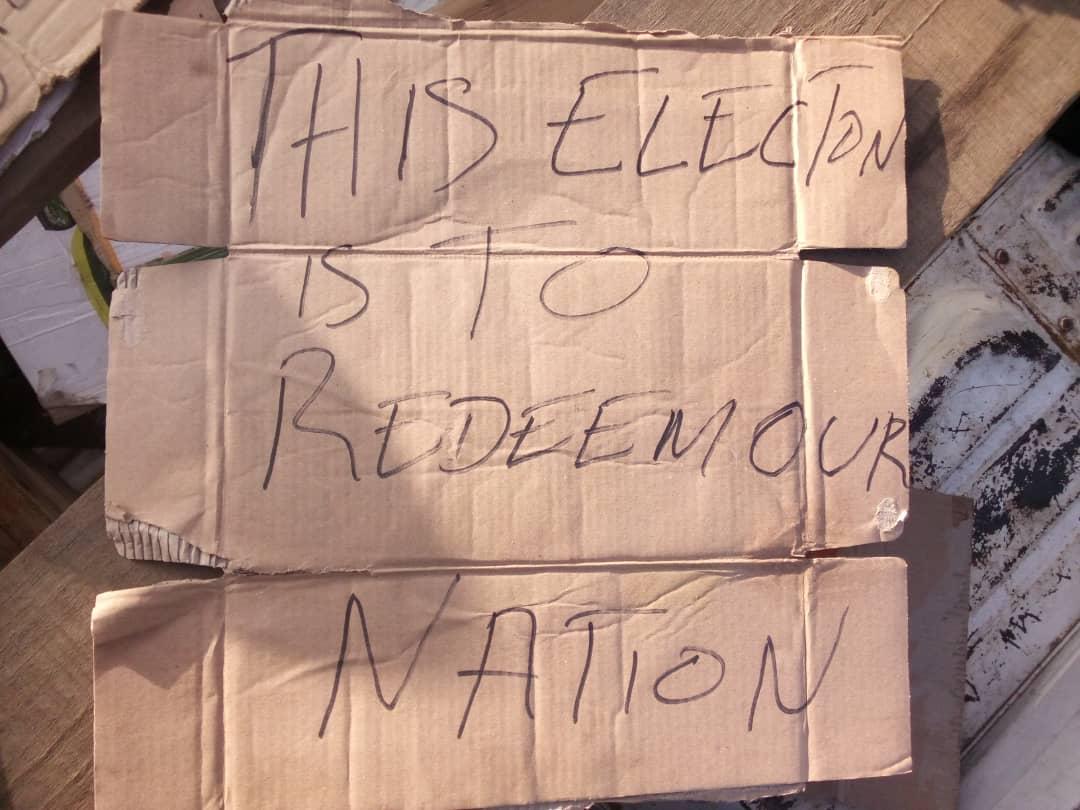 THIS ELECTON
IS TO
REDEEM OUR
NATION